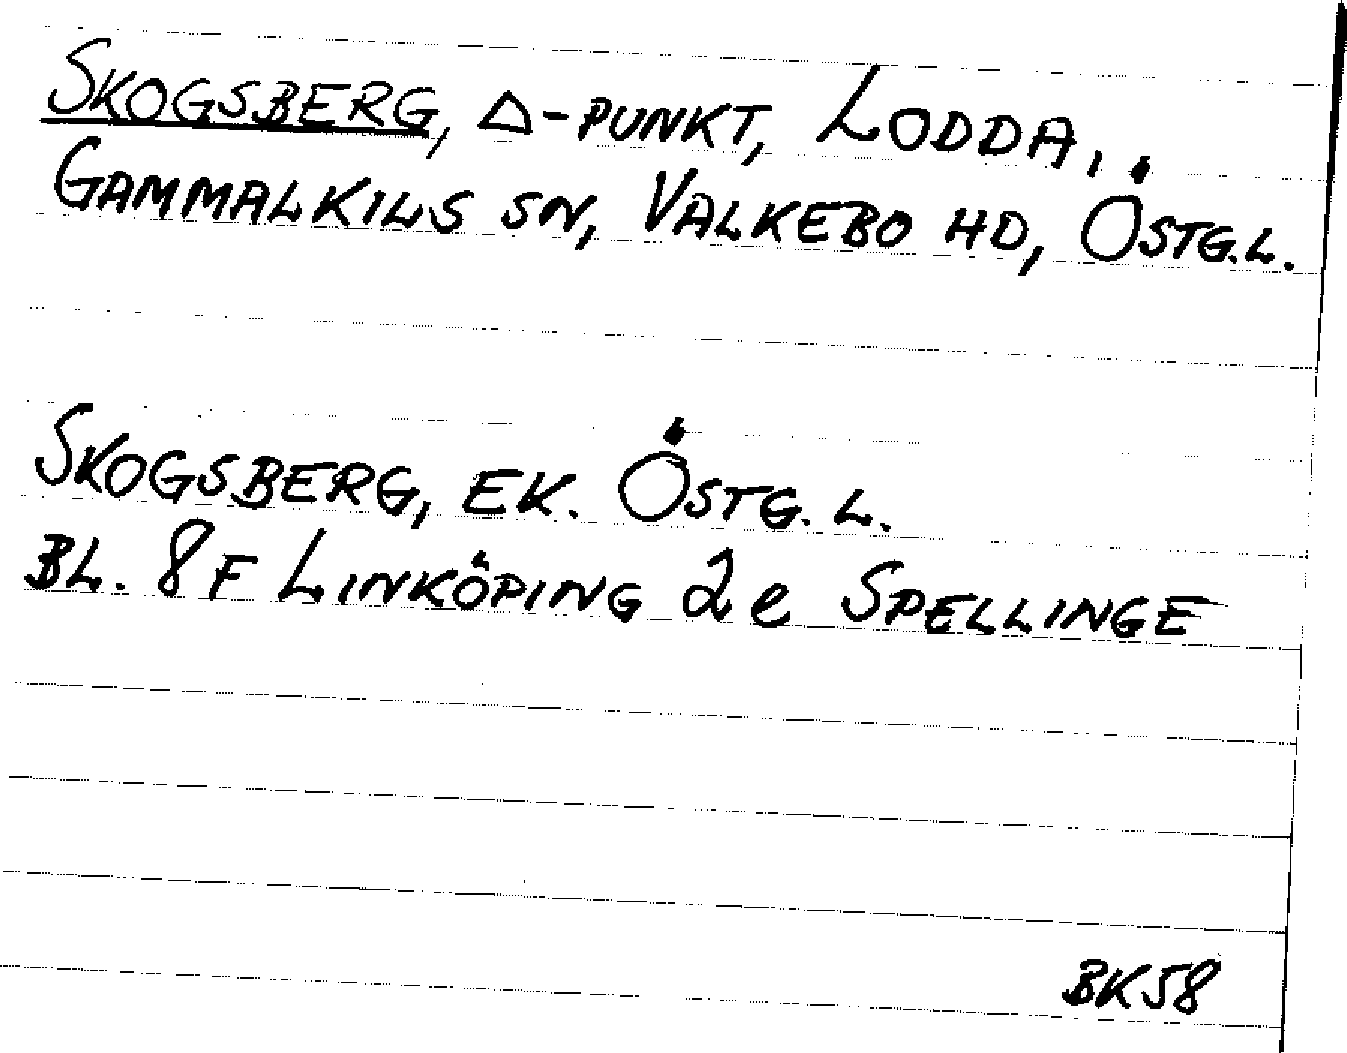 SKOGSBERG, △-PUNKT, LODDA,
GAMMALKILS SN, VALKEBO HD, ÖSTG.L.
SKOGSBERG, EK. ÖSTG.L.
BL. 8F LINKÖPING 2e SPELLINGE
BK58